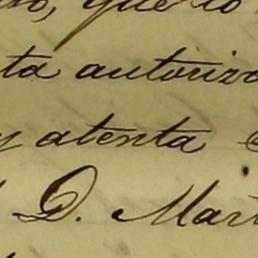 que lo
ta autoriza
y atenta
D. Mart